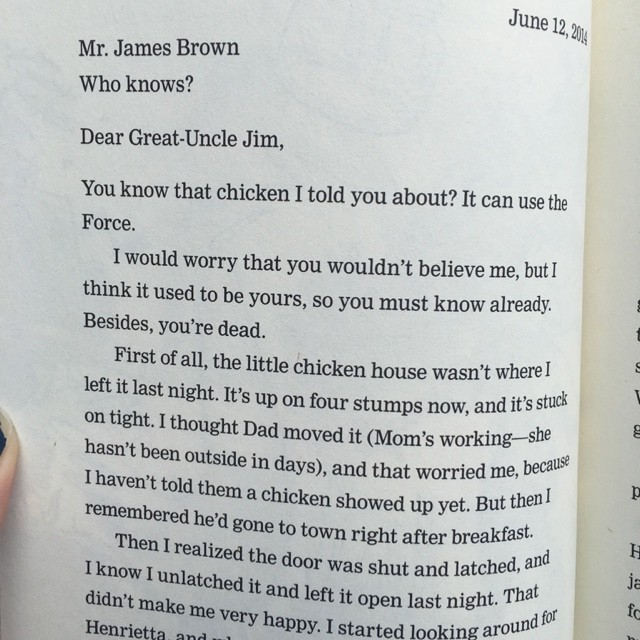 June 12, 2014
Mr. James Brown
Who knows?
Dear Great-Uncle Jim,
You know that chicken I told you about? It can use the
Force.
I would worry that you wouldn't believe me, but I
think it used to be yours, so you must know already.
Besides, you're dead.
First of all, the little chicken house wasn't where I
left it last night. It's up on four stumps now, and it's stuck
on tight. I thought Dad moved it (Mom's working—she
hasn't been outside in days), and that worried me, because
I haven't told them a chicken showed up yet. But then I
remembered he'd gone to town right after breakfast.
Then I realized the door was shut and latched, and
I know I unlatched it and left it open last night. That
didn't make me very happy. I started looking around for
Henrietta, and